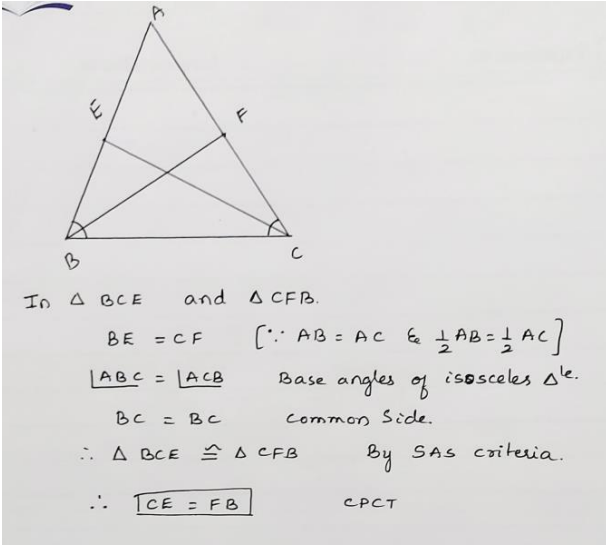 A
E
F
B
C
In Δ BCE and Δ CFB.
BE = CF [∵ AB = AC & 1/2 AB = 1/2 AC]
∠ABC = ∠ACB Base angles of isosceles Δle.
BC = BC common Side.
∴ Δ BCE ≅ Δ CFB By SAS criteria.
∴ CE = FB CPCT